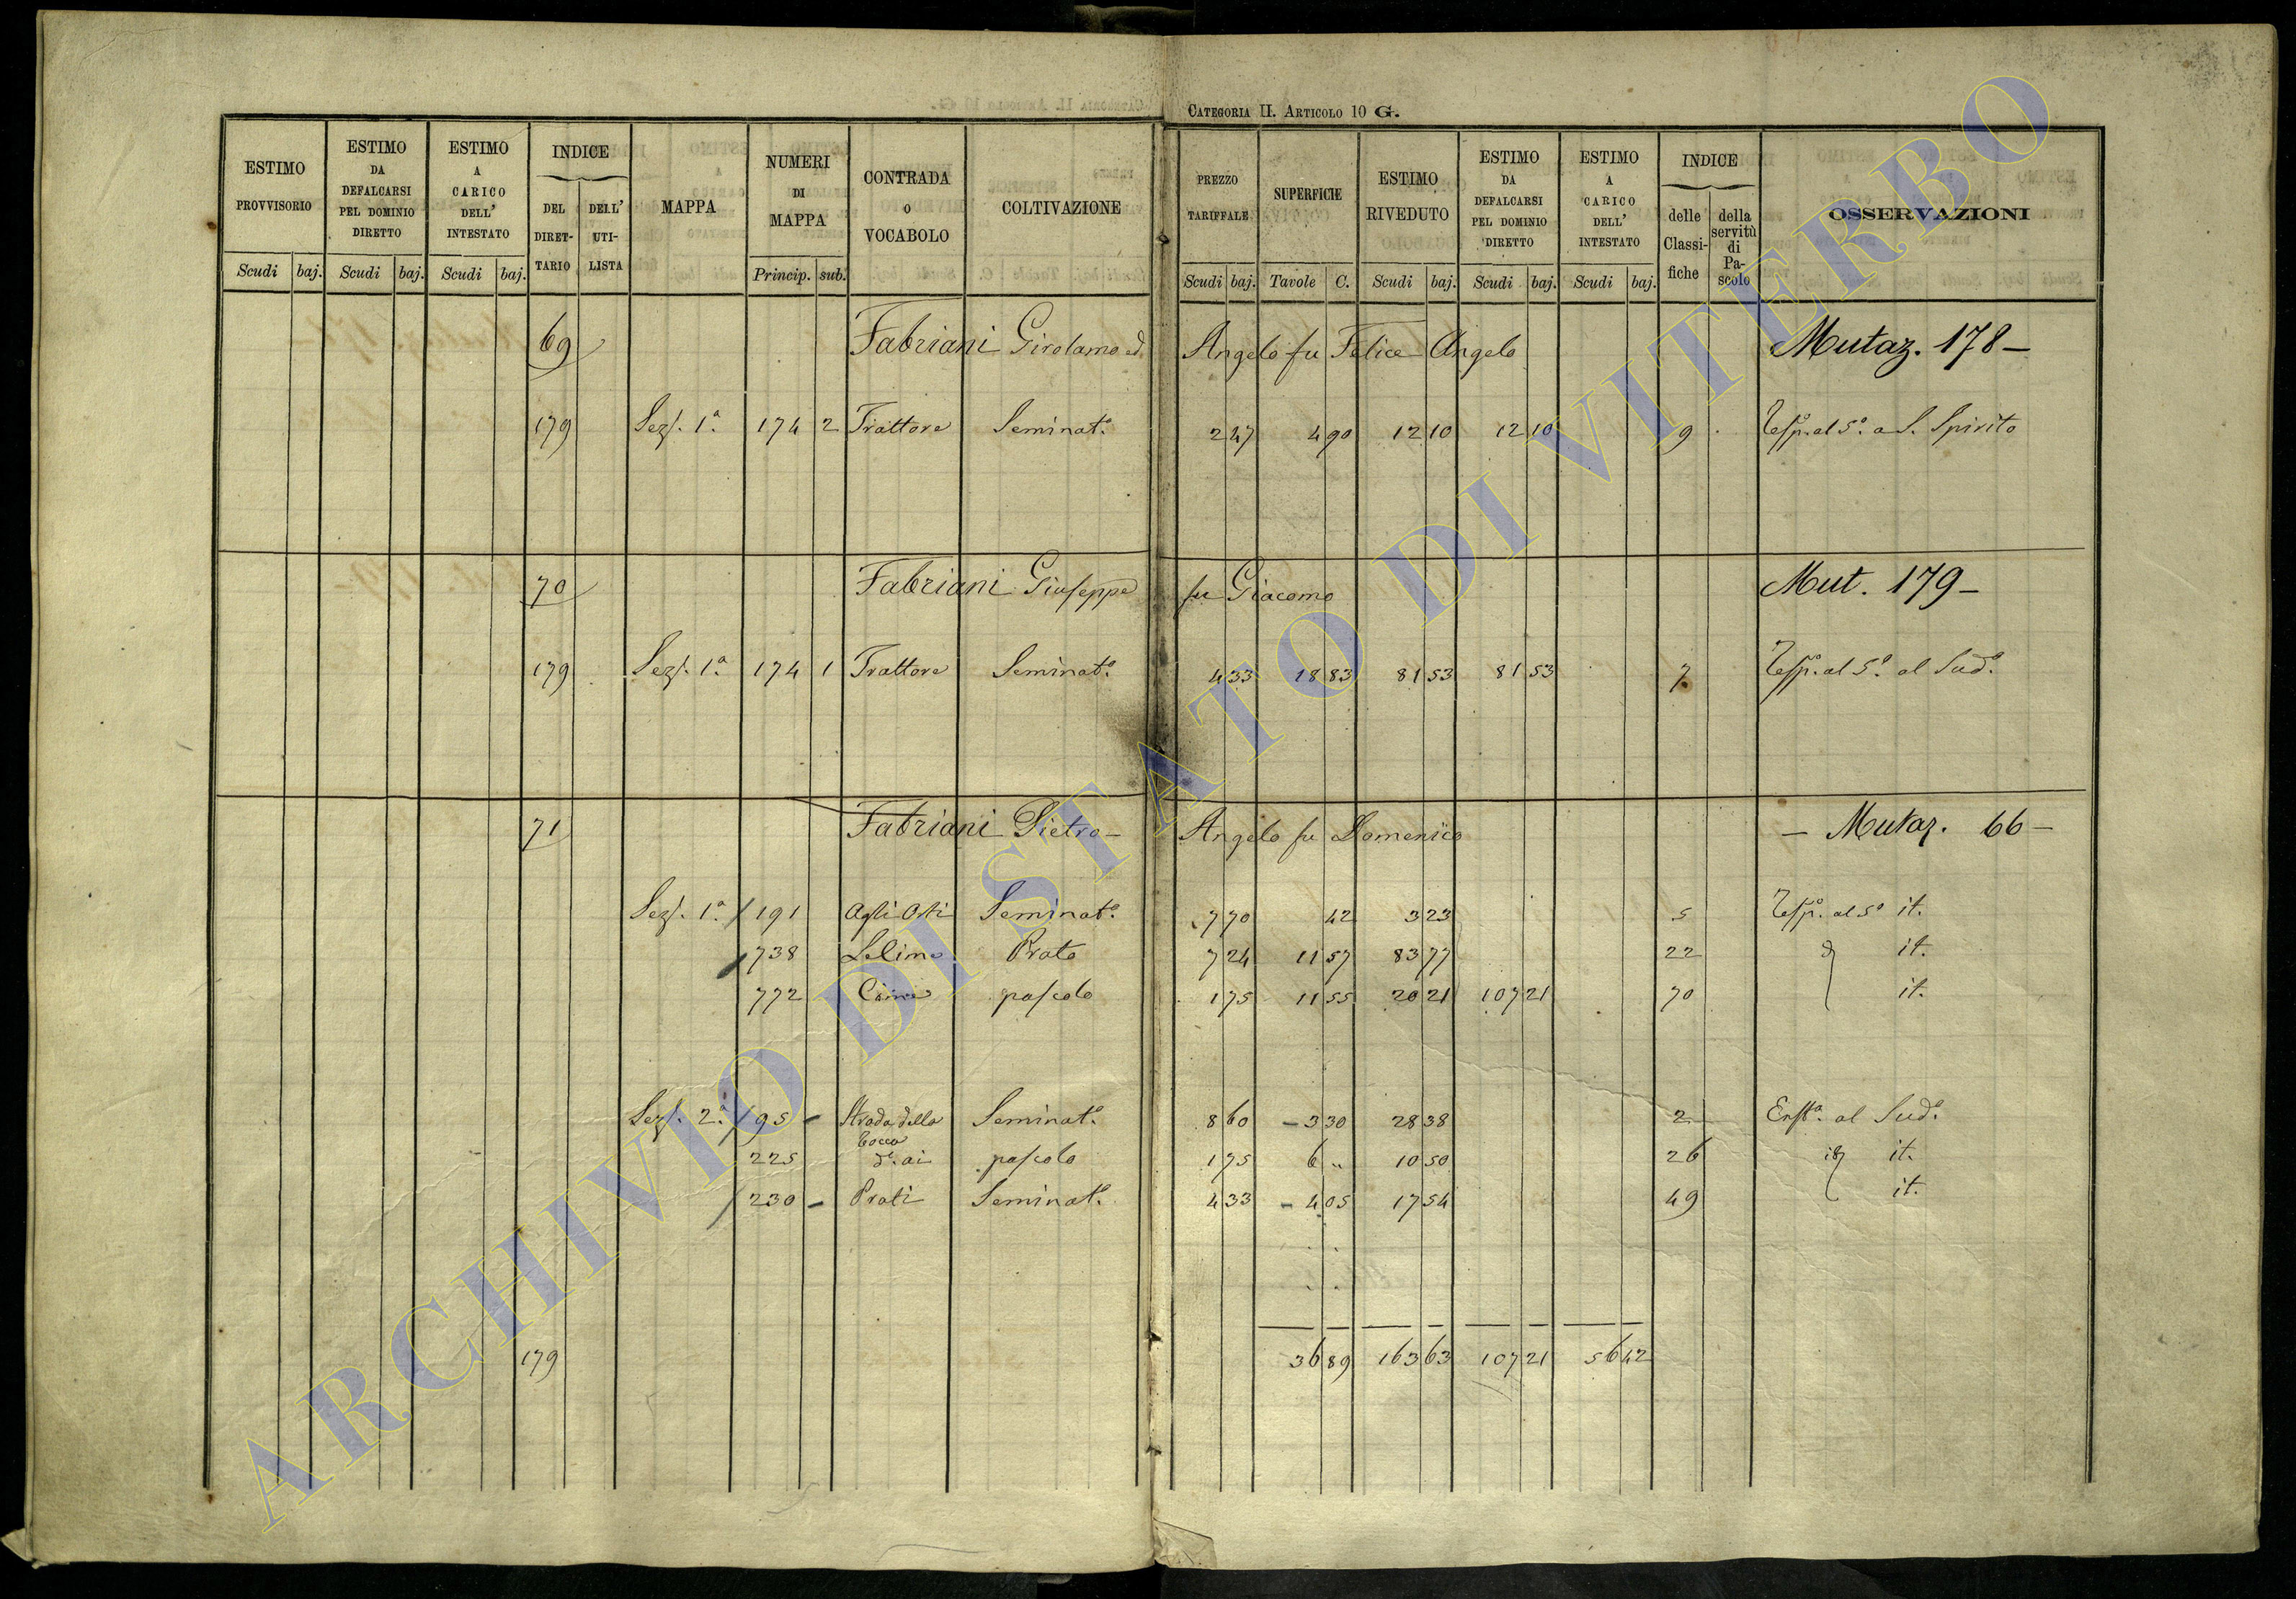 CATEGORIA II. ARTICOLO 10 G.
ESTIMO PROVVISORIO Scudi baj.
ESTIMO DA DEFALCARSI PEL DOMINIO DIRETTO Scudi baj.
ESTIMO A CARICO DELL' INTESTATO Scudi baj.
INDICE DEL DIRETTARIO DELL' UTILISTA
MAPPA
NUMERI DI MAPPA Princip. sub.
CONTRADA O VOCABOLO
COLTIVAZIONE
PREZZO TARIFFALE Scudi baj.
SUPERFICIE Tavole C.
ESTIMO RIVEDUTO Scudi baj.
ESTIMO DA DEFALCARSI PEL DOMINIO DIRETTO Scudi baj.
ESTIMO A CARICO DELL' INTESTATO Scudi baj.
INDICE delle Classifiche della servitù di Pascolo
OSSERVAZIONI
69 Fabriani Girolamo ed Angelo fu Felice Angelo Mutaz. 178 –
179 Sez. 1ª 174 2 Trattore Seminat.º 2 47 4 90 12 10 12 10 9 al S.º a S. Spirito
70 Fabriani Giuseppe fu Giacomo Mut. 179 –
179 Sez. 1ª 174 1 Trattore Seminat.º 4 33 18 83 81 53 81 53 7 al S.º al Sud.º
71 Fabriani Pietro – Angelo fu Domenico – Mutaz. 66 –
Sez. 1ª 191 Agli Seminat.º 7 70 42 3 23 5 al S.º it.
738 Prato 7 24 11 57 83 77 22 it.
772 pascolo 1 75 11 55 20 21 107 21 70 it.
Sez. 2ª 95 – Strada della Seminat.º 8 60 – 3 30 28 38 2 al Sud.º
Rocca
225 d.ª ai pascolo 1 75 6 „ 10 50 26 it.
230 – Prati Seminat.º 4 33 – 4 05 17 54 49 it.
179 36 89 163 63 107 21 56 42
ARCHIVIO DI STATO DI VITERBO